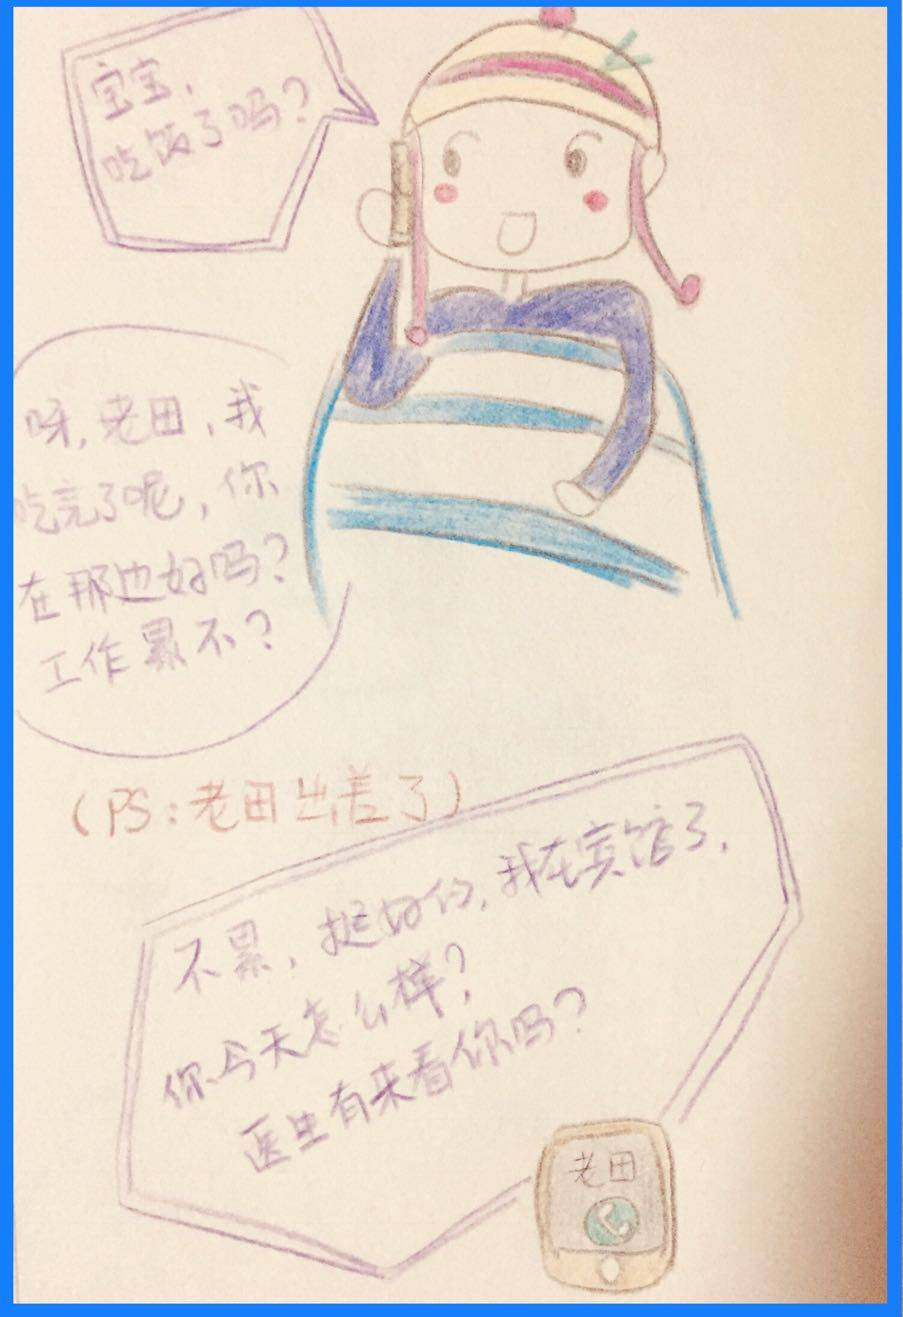 宝宝，
吃饭了吗？
呀，老田，我
吃完了呢，你
在那边好吗？
工作累不？
（PS：老田出差了）
不累，挺好的，我在宾馆了，
你今天怎么样？
医生有来看你吗？
老田